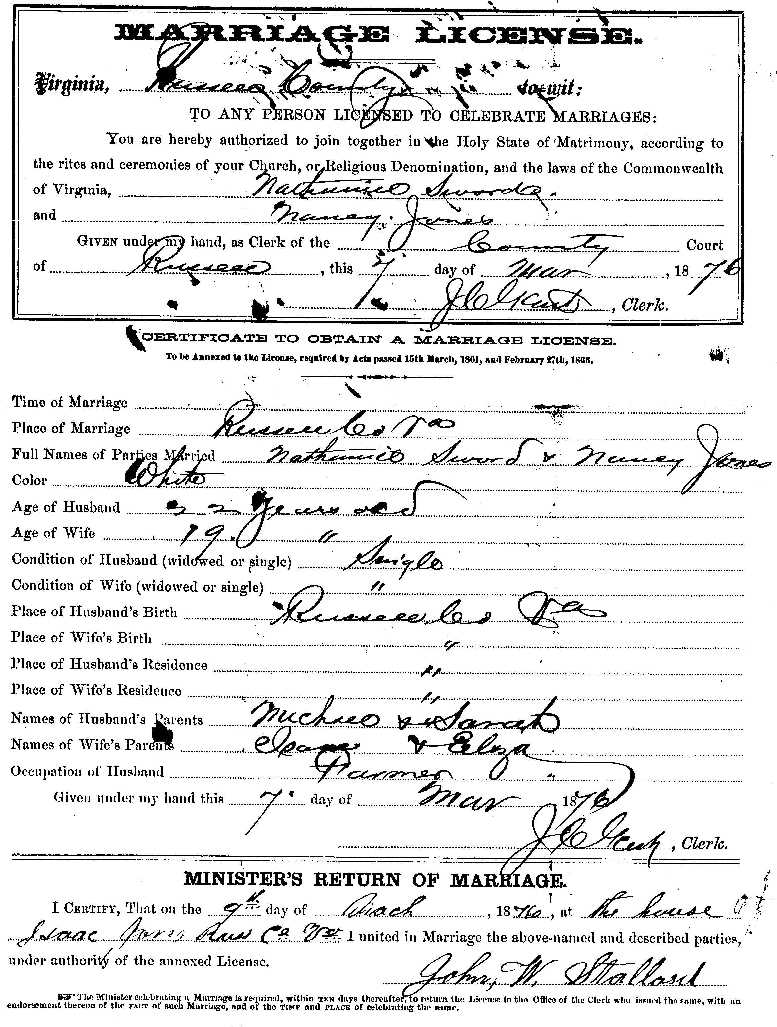 MARRIAGE LICENSE.
Virginia, Russell County to-wit:
TO ANY PERSON LICENSED TO CELEBRATE MARRIAGES:
You are hereby authorized to join together in the Holy State of Matrimony, according to
the rites and ceremonies of your Church, or Religious Denomination, and the laws of the Commonwealth
of Virginia, Nathaniel Swords.
and Nancy Jones
GIVEN under my hand, as Clerk of the County Court
of Russell, this 7 day of Mar, 1876
J C Gent, Clerk.
CERTIFICATE TO OBTAIN A MARRIAGE LICENSE.
To be Annexed to the License, required by Acts passed 15th March, 1861, and February 27th, 1866.
Time of Marriage
Place of Marriage Russell Co Va
Full Names of Parties Married Nathaniel Sword & Nancy Jones
Color White
Age of Husband 22 Years old
Age of Wife 19. "
Condition of Husband (widowed or single) Single
Condition of Wife (widowed or single) "
Place of Husband's Birth Russell Co Va
Place of Wife's Birth "
Place of Husband's Residence "
Place of Wife's Residence "
Names of Husband's Parents Michael & Sarah
Names of Wife's Parents Isaac & Eliza
Occupation of Husband Farmer
Given under my hand this 7. day of Mar 1876
J C Gent, Clerk.
MINISTER'S RETURN OF MARRIAGE.
I CERTIFY, That on the 9th day of March, 1876, at the house of
Isaac Jones Russ Co Va I united in Marriage the above-named and described parties,
under authority of the annexed License.
John, W. Stallard
The Minister celebrating a Marriage is required, within TEN days thereafter, to return the License to the Office of the Clerk who issued the same, with an
endorsement thereon of the FACT of such Marriage, and of the TIME and PLACE of celebrating the same.